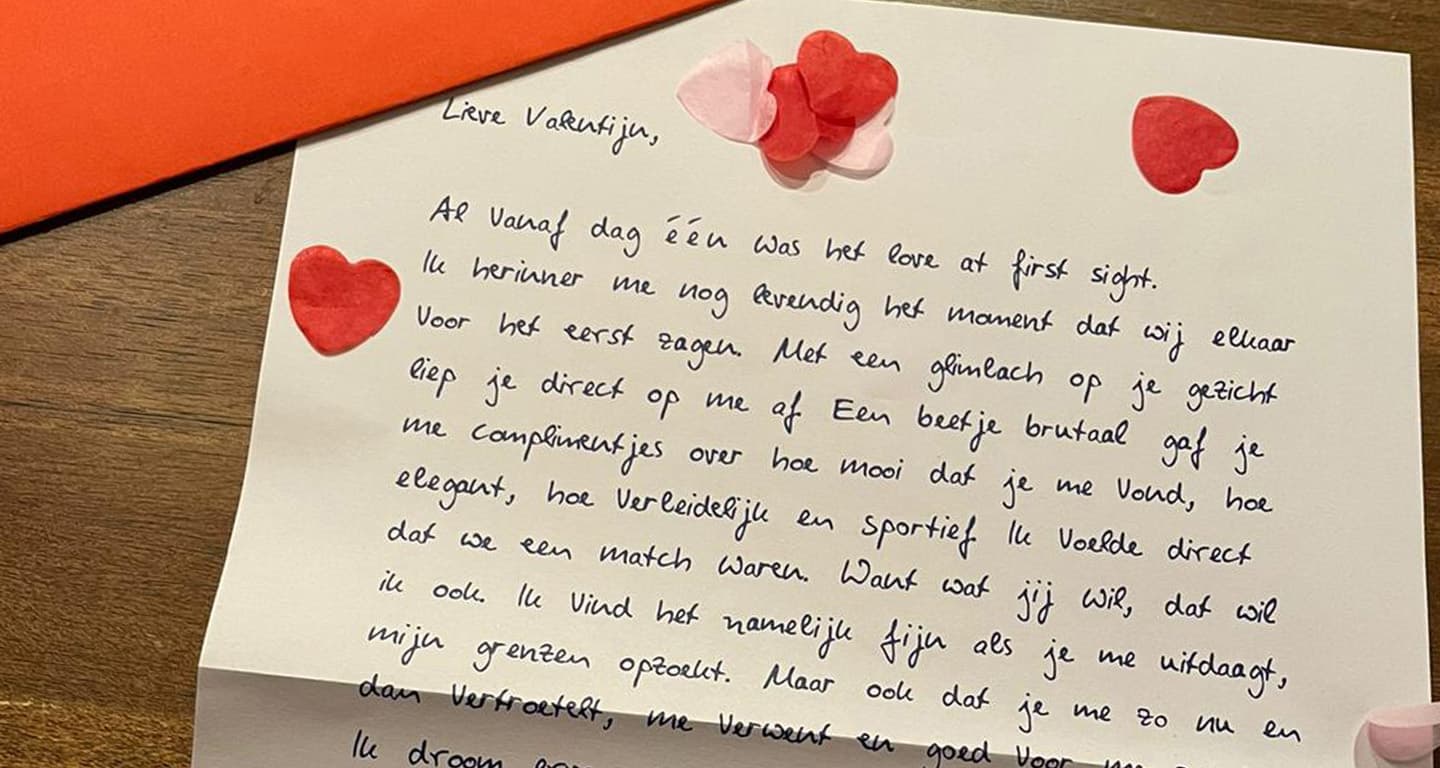 Lieve Valentijn,
Al vanaf dag één was het love at first sight.
Ik herinner me nog levendig het moment dat wij elkaar
voor het eerst zagen. Met een glimlach op je gezicht
liep je direct op me af Een beetje brutaal gaf je
me complimentjes over hoe mooi dat je me vond, hoe
elegant, hoe verleidelijk en sportief Ik voelde direct
dat we een match waren. Want wat jij wil, dat wil
ik ook. Ik vind het namelijk fijn als je me uitdaagt,
mijn grenzen opzoekt. Maar ook dat je me zo nu en
dan vertroetelt, me verwent en goed voor
Ik droom